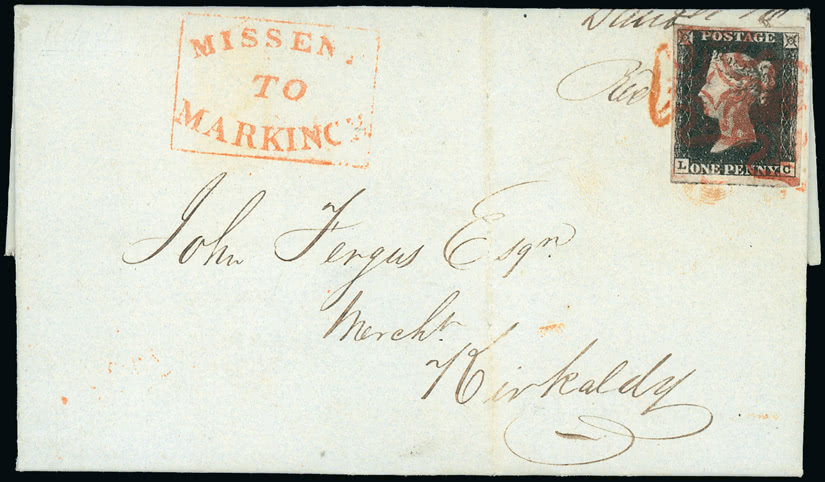 MISSENT
TO
MARKINCH
POSTAGE
L ONE PENNY C
John Fergus Esqr.
Mercht.
Kirkaldy